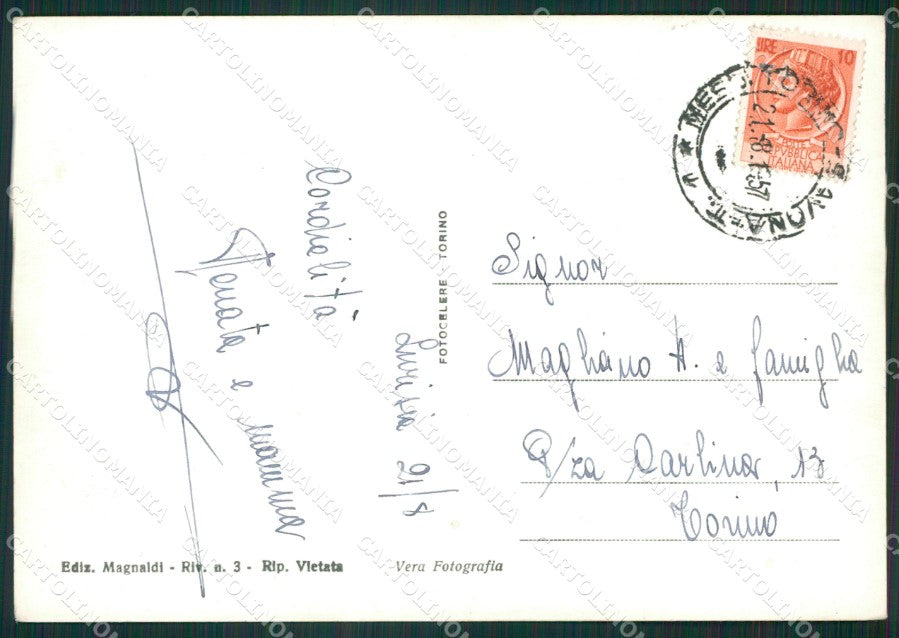 Cordialità
Lurisia 21/8
Renata e mamma
FOTOCELERE TORINO
Signor
Magliano A. e famiglia
P/za Carlina, 13
Torino
LIRE 10
POSTE
REPUBBLICA
ITALIANA
21.8.1957
Ediz. Magnaldi - Riv. n. 3 - Rip. Vietata
Vera Fotografia
CARTOLINOMANIA